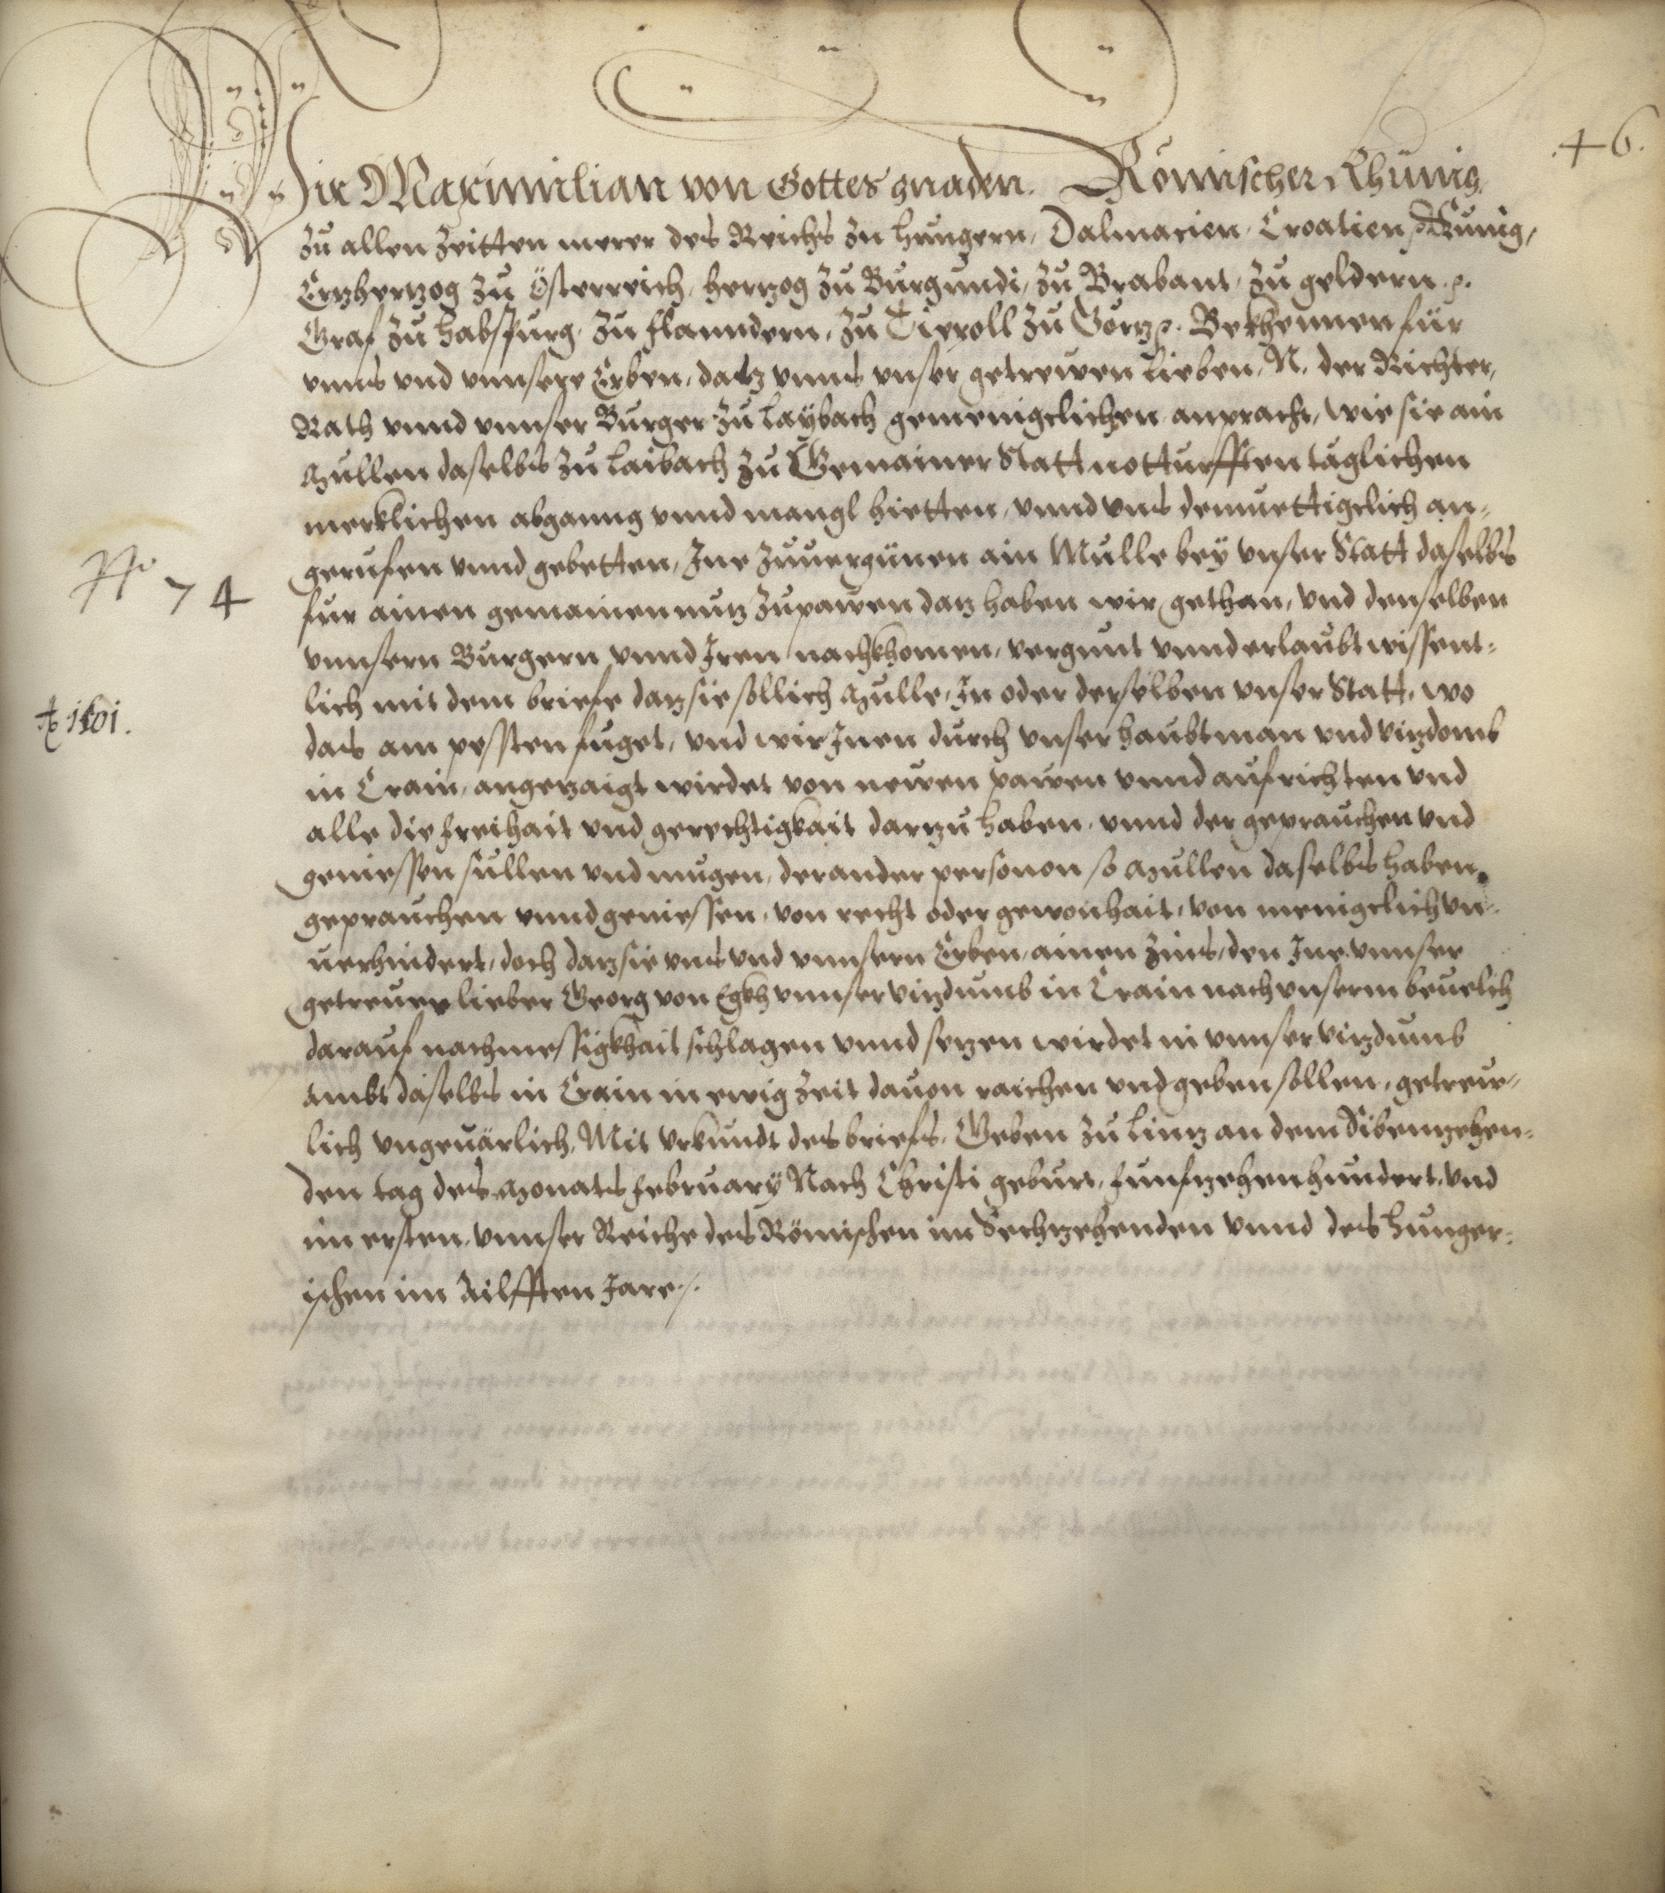 46.
Wir Maximilian von Gottes gnaden. Römischer Khünig,
zu allen Zeitten merer des Reichs zu hungern, Dalmacien, Croatien, &c. Kunig,
Ertzhertzog zu Österreich, hertzog zu Burgundi, zu Brabant, zu geldern &c.
Graf zu habspurg, zu flanndern, zu Tieroll zu Görtz &c. Bekhennen für
vnns vnd vnnsere Erben, datz vnns vnser getrewen Lieben, N. der Richter,
Rath vnnd vnnser Burger zu Laybach gemenigclichen anpracht, wie sie ain
Mullen daselbs zu Laibach zu Gemainer Statt notturfften täglichen
merklichen abganng vnnd mangl hietten, vnnd vns demuettigclich an-
gerufen vnnd gebetten, Ine zuuergünen ain Mulle bey vnser Statt daselbs
fur ainen gemainen nutz zupawen datz haben wir gethan, vnd denselben
vnnsern Burgern vnnd Iren nachkhomen, vergunt vnnd erlaubt wissent-
lich mit dem briefe datz sie sollich Mulle, In oder derselben vnser Statt, wo
das am pessten fuget, vnd wir Inen durch vnser haubtman vnd vitzdomb
in Crain, angetzaigt wirdet von newen pawen vnnd aufrichten vnd
alle die freihait vnd gerechtigkait dartzu haben, vnnd der geprauchen vnd
geniessen sullen vnd mugen, der ander personon so Mullen daselbs haben
geprauchen vnnd geniessen, von recht oder gewonhait, von menigclich vn-
uerhindert, doch datz sie vns vnd vnnsern Erben, ainen Zins, den Ine vnnser
getreuer lieber Georg von Egkh vnnser vitzdumb in Crain nach vnserm beuelch
darauf nach messigkhait schlagen vnnd setzen wirdet in vnnser vitzdumb
Ambt daselbs in Crain in ewig Zeit dauon raichen vnd geben sollen, getreu-
lich vngeuärlich, Mit vrkundt des briefs, Geben zu Linntz an dem Sibentzehen-
den tag des Monats february Nach Christi geburt, funftzehenhundert, vnd
im ersten, vnnser Reiche des Römischen im Sechtzehenden vnnd des hunger-
ischen im Ailfften Jare.
No 74
Ao 1501.